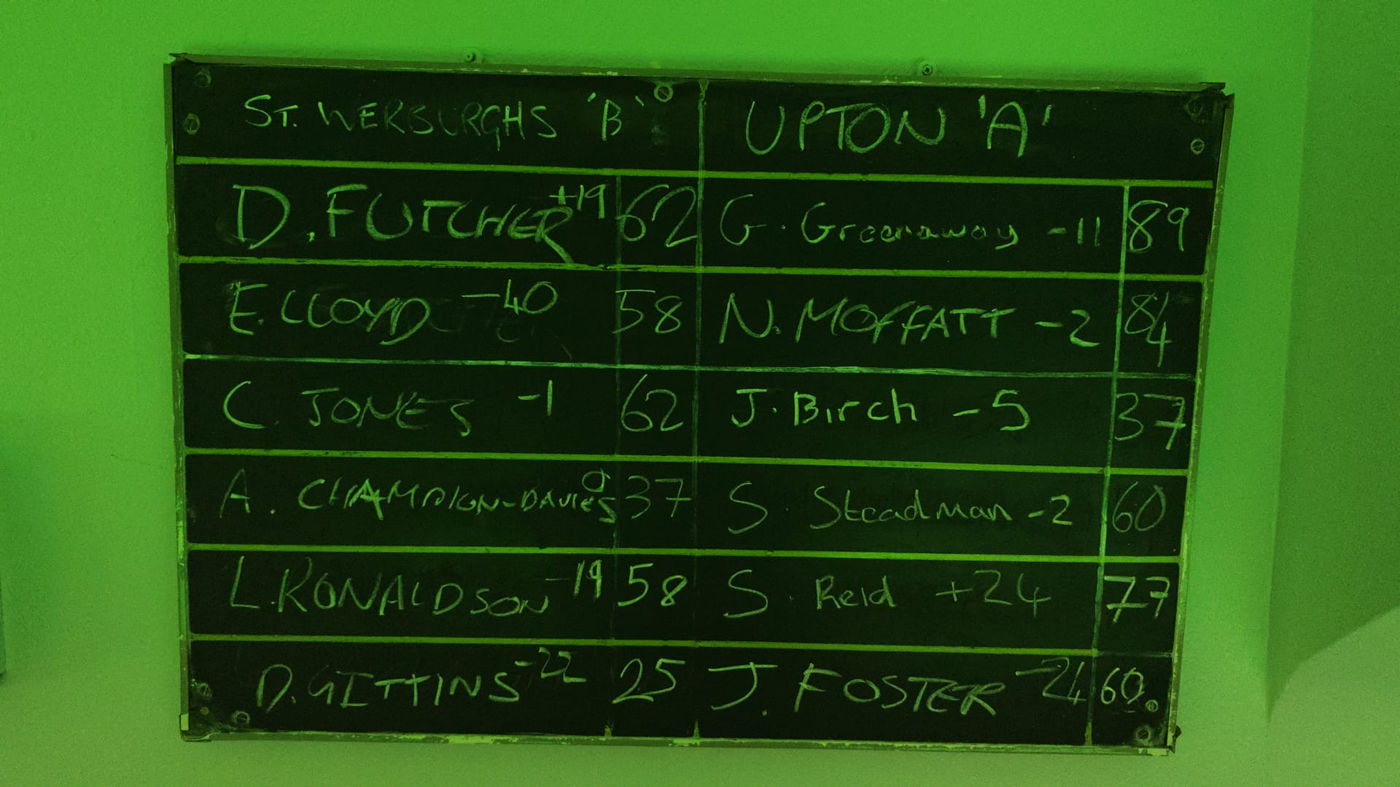 ST. WERBURGHS 'B' UPTON 'A'
D. FUTCHER +19 62 G. Greenaway -11 89
E. LLOYD -40 58 N. MOFFATT -2 84
C. JONES -1 62 J. Birch -5 37
A. CHAMPION-DAVIES 0 37 S. Steadman -2 60
L. RONALDSON -19 58 S. Reid +24 77
D. GITTINS -22 25 J. FOSTER -24 60